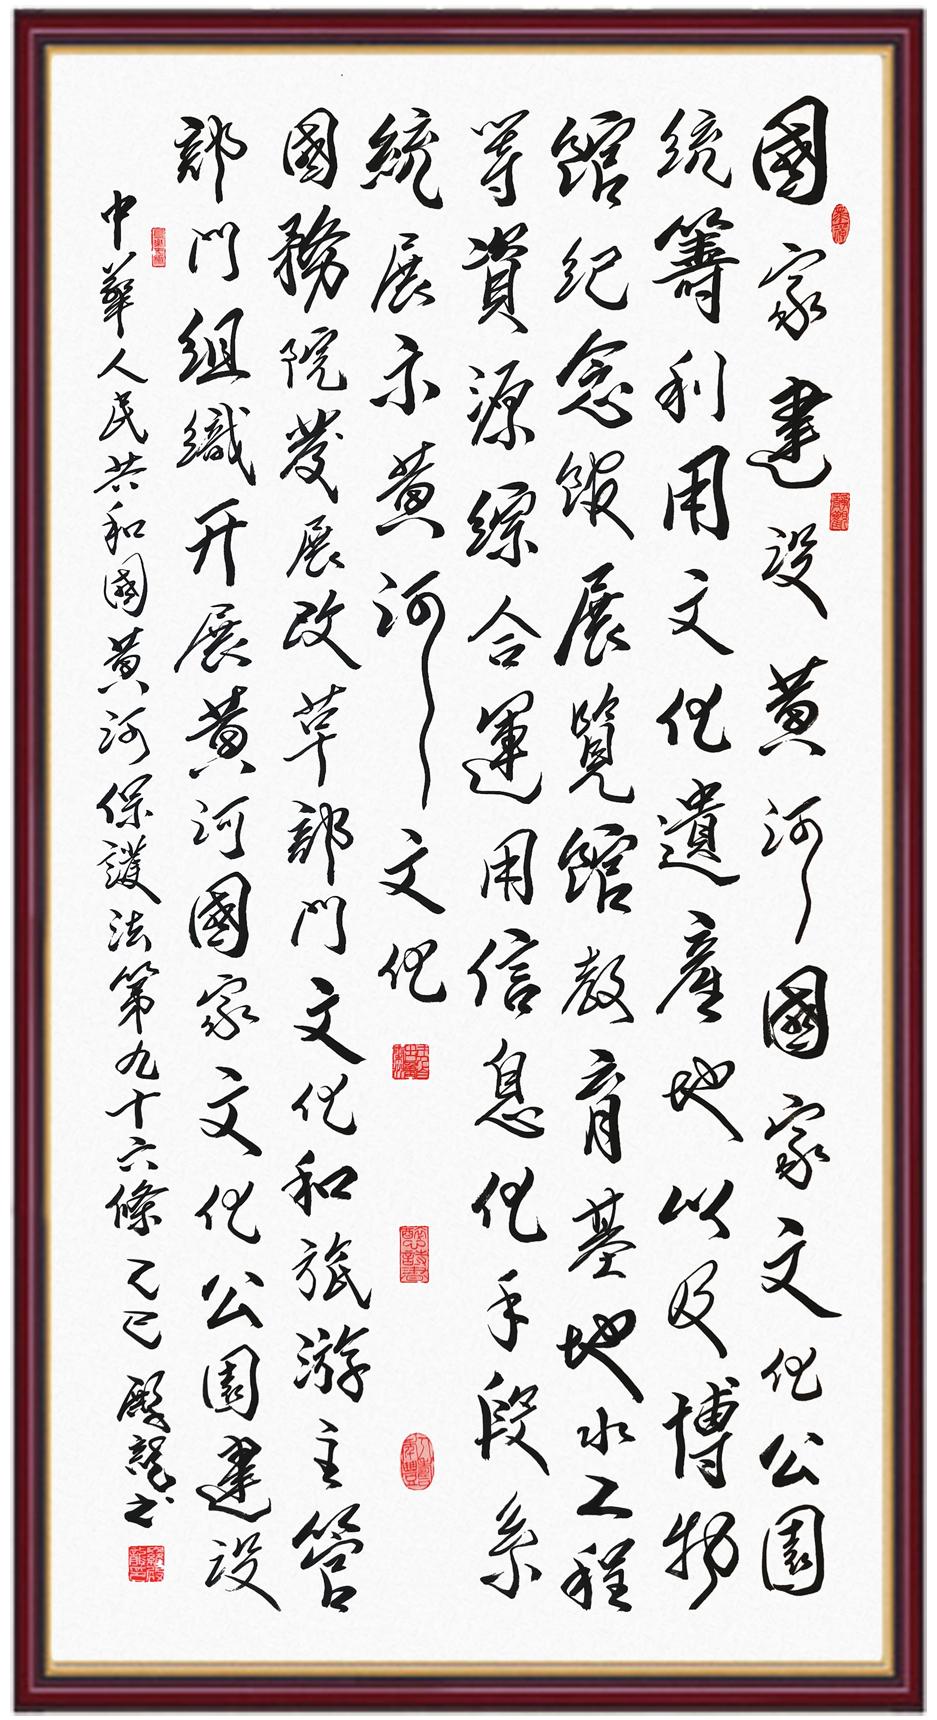 國家建設黃河國家文化公園
統籌利用文化遺產地以及博物
館紀念館展覽館教育基地水工程
等資源綜合運用信息化手段系
統展示黃河文化
國務院發展改革部門文化和旅游主管
部門組織开展黃河國家文化公園建設
中華人民共和國黃河保護法第九十六條 乙巳 殿龍书